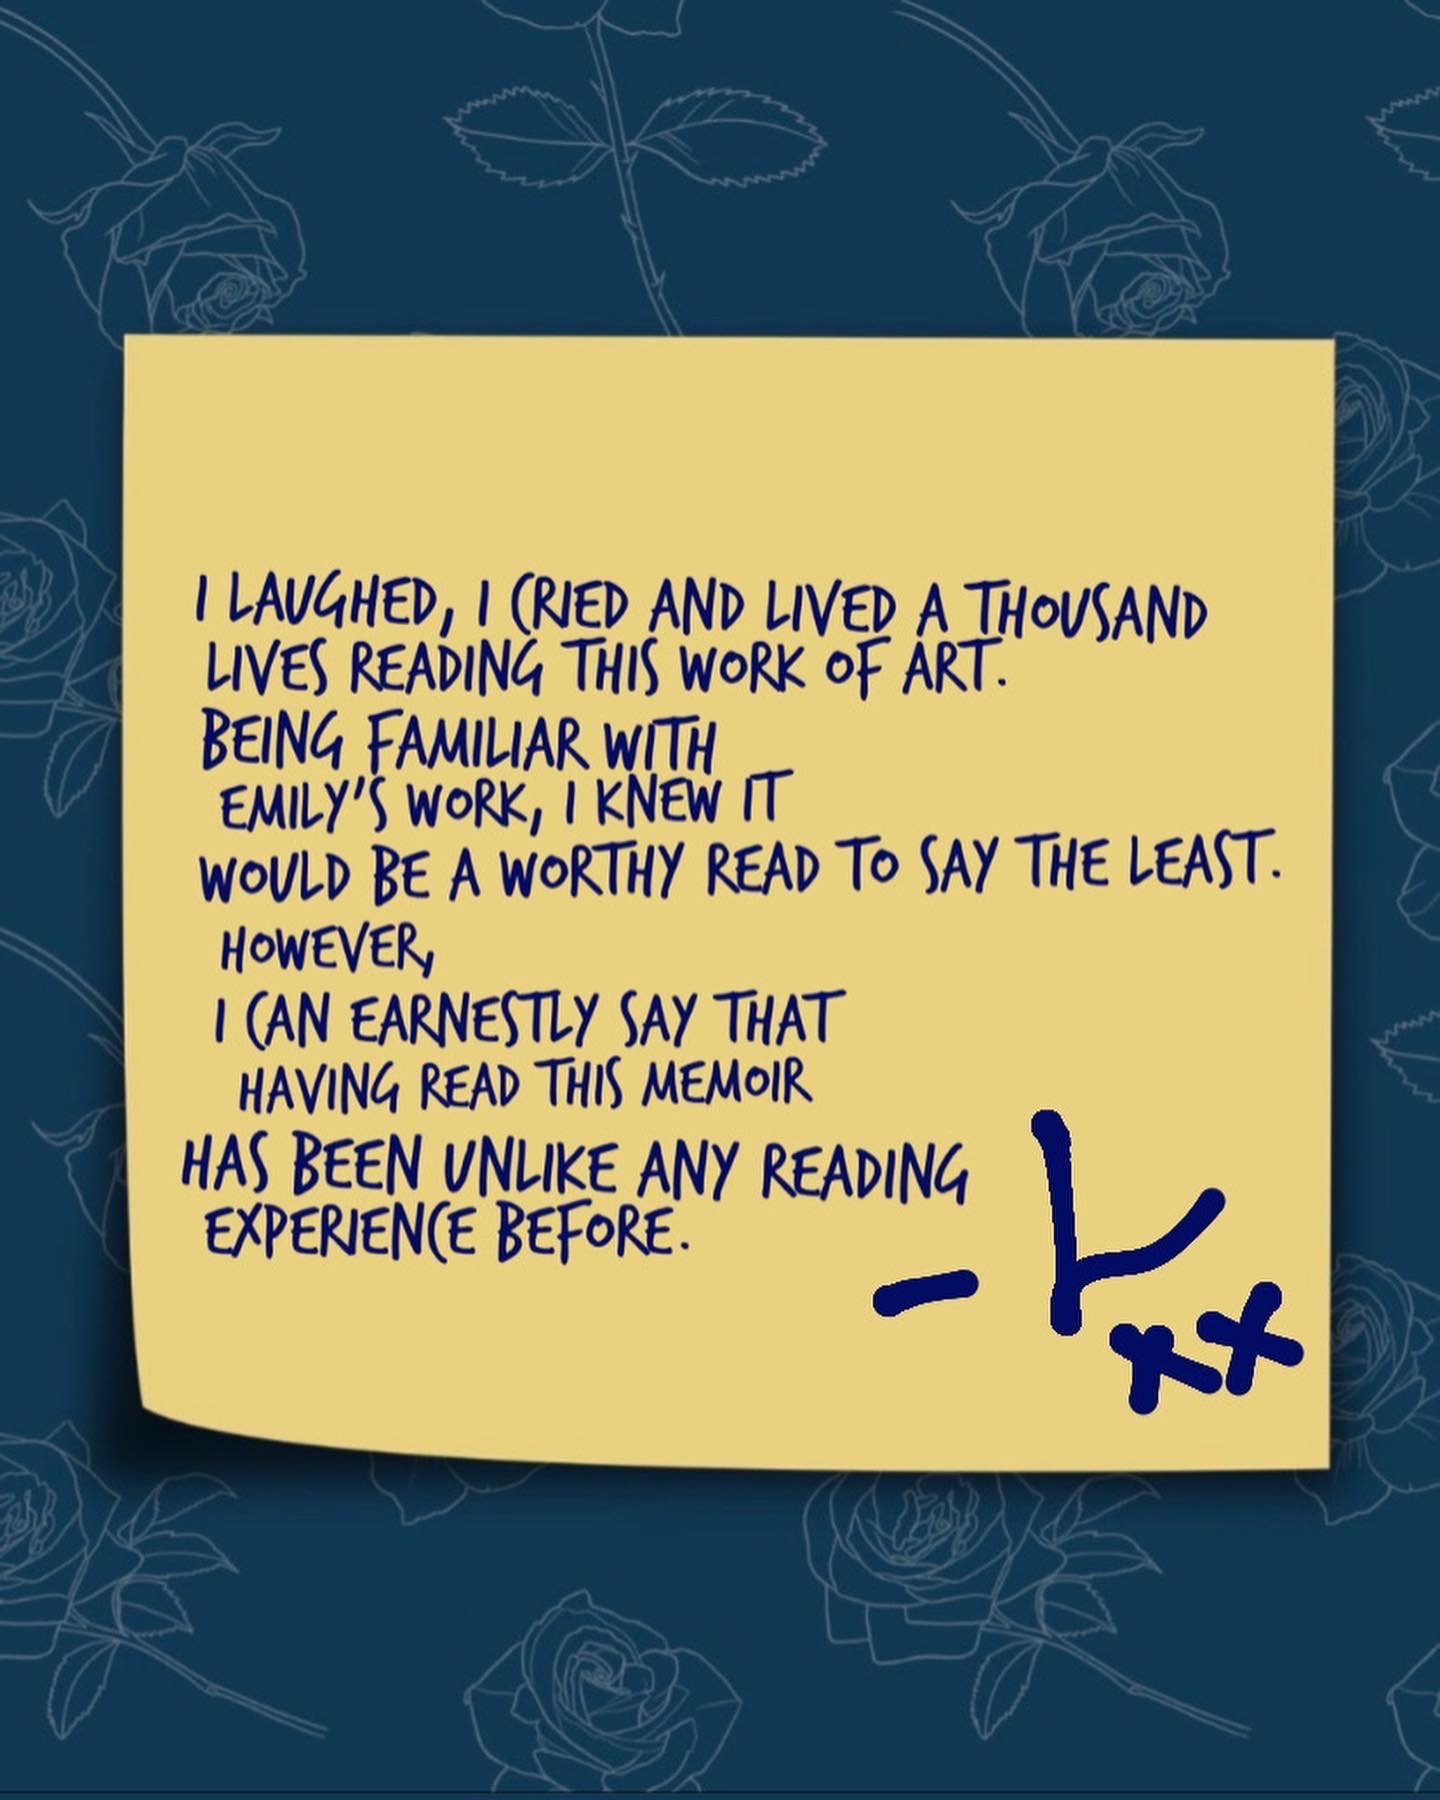 I LAUGHED, I CRIED AND LIVED A THOUSAND
LIVES READING THIS WORK OF ART.
BEING FAMILIAR WITH
EMILY'S WORK, I KNEW IT
WOULD BE A WORTHY READ TO SAY THE LEAST.
HOWEVER,
I CAN EARNESTLY SAY THAT
HAVING READ THIS MEMOIR
HAS BEEN UNLIKE ANY READING
EXPERIENCE BEFORE.
xx